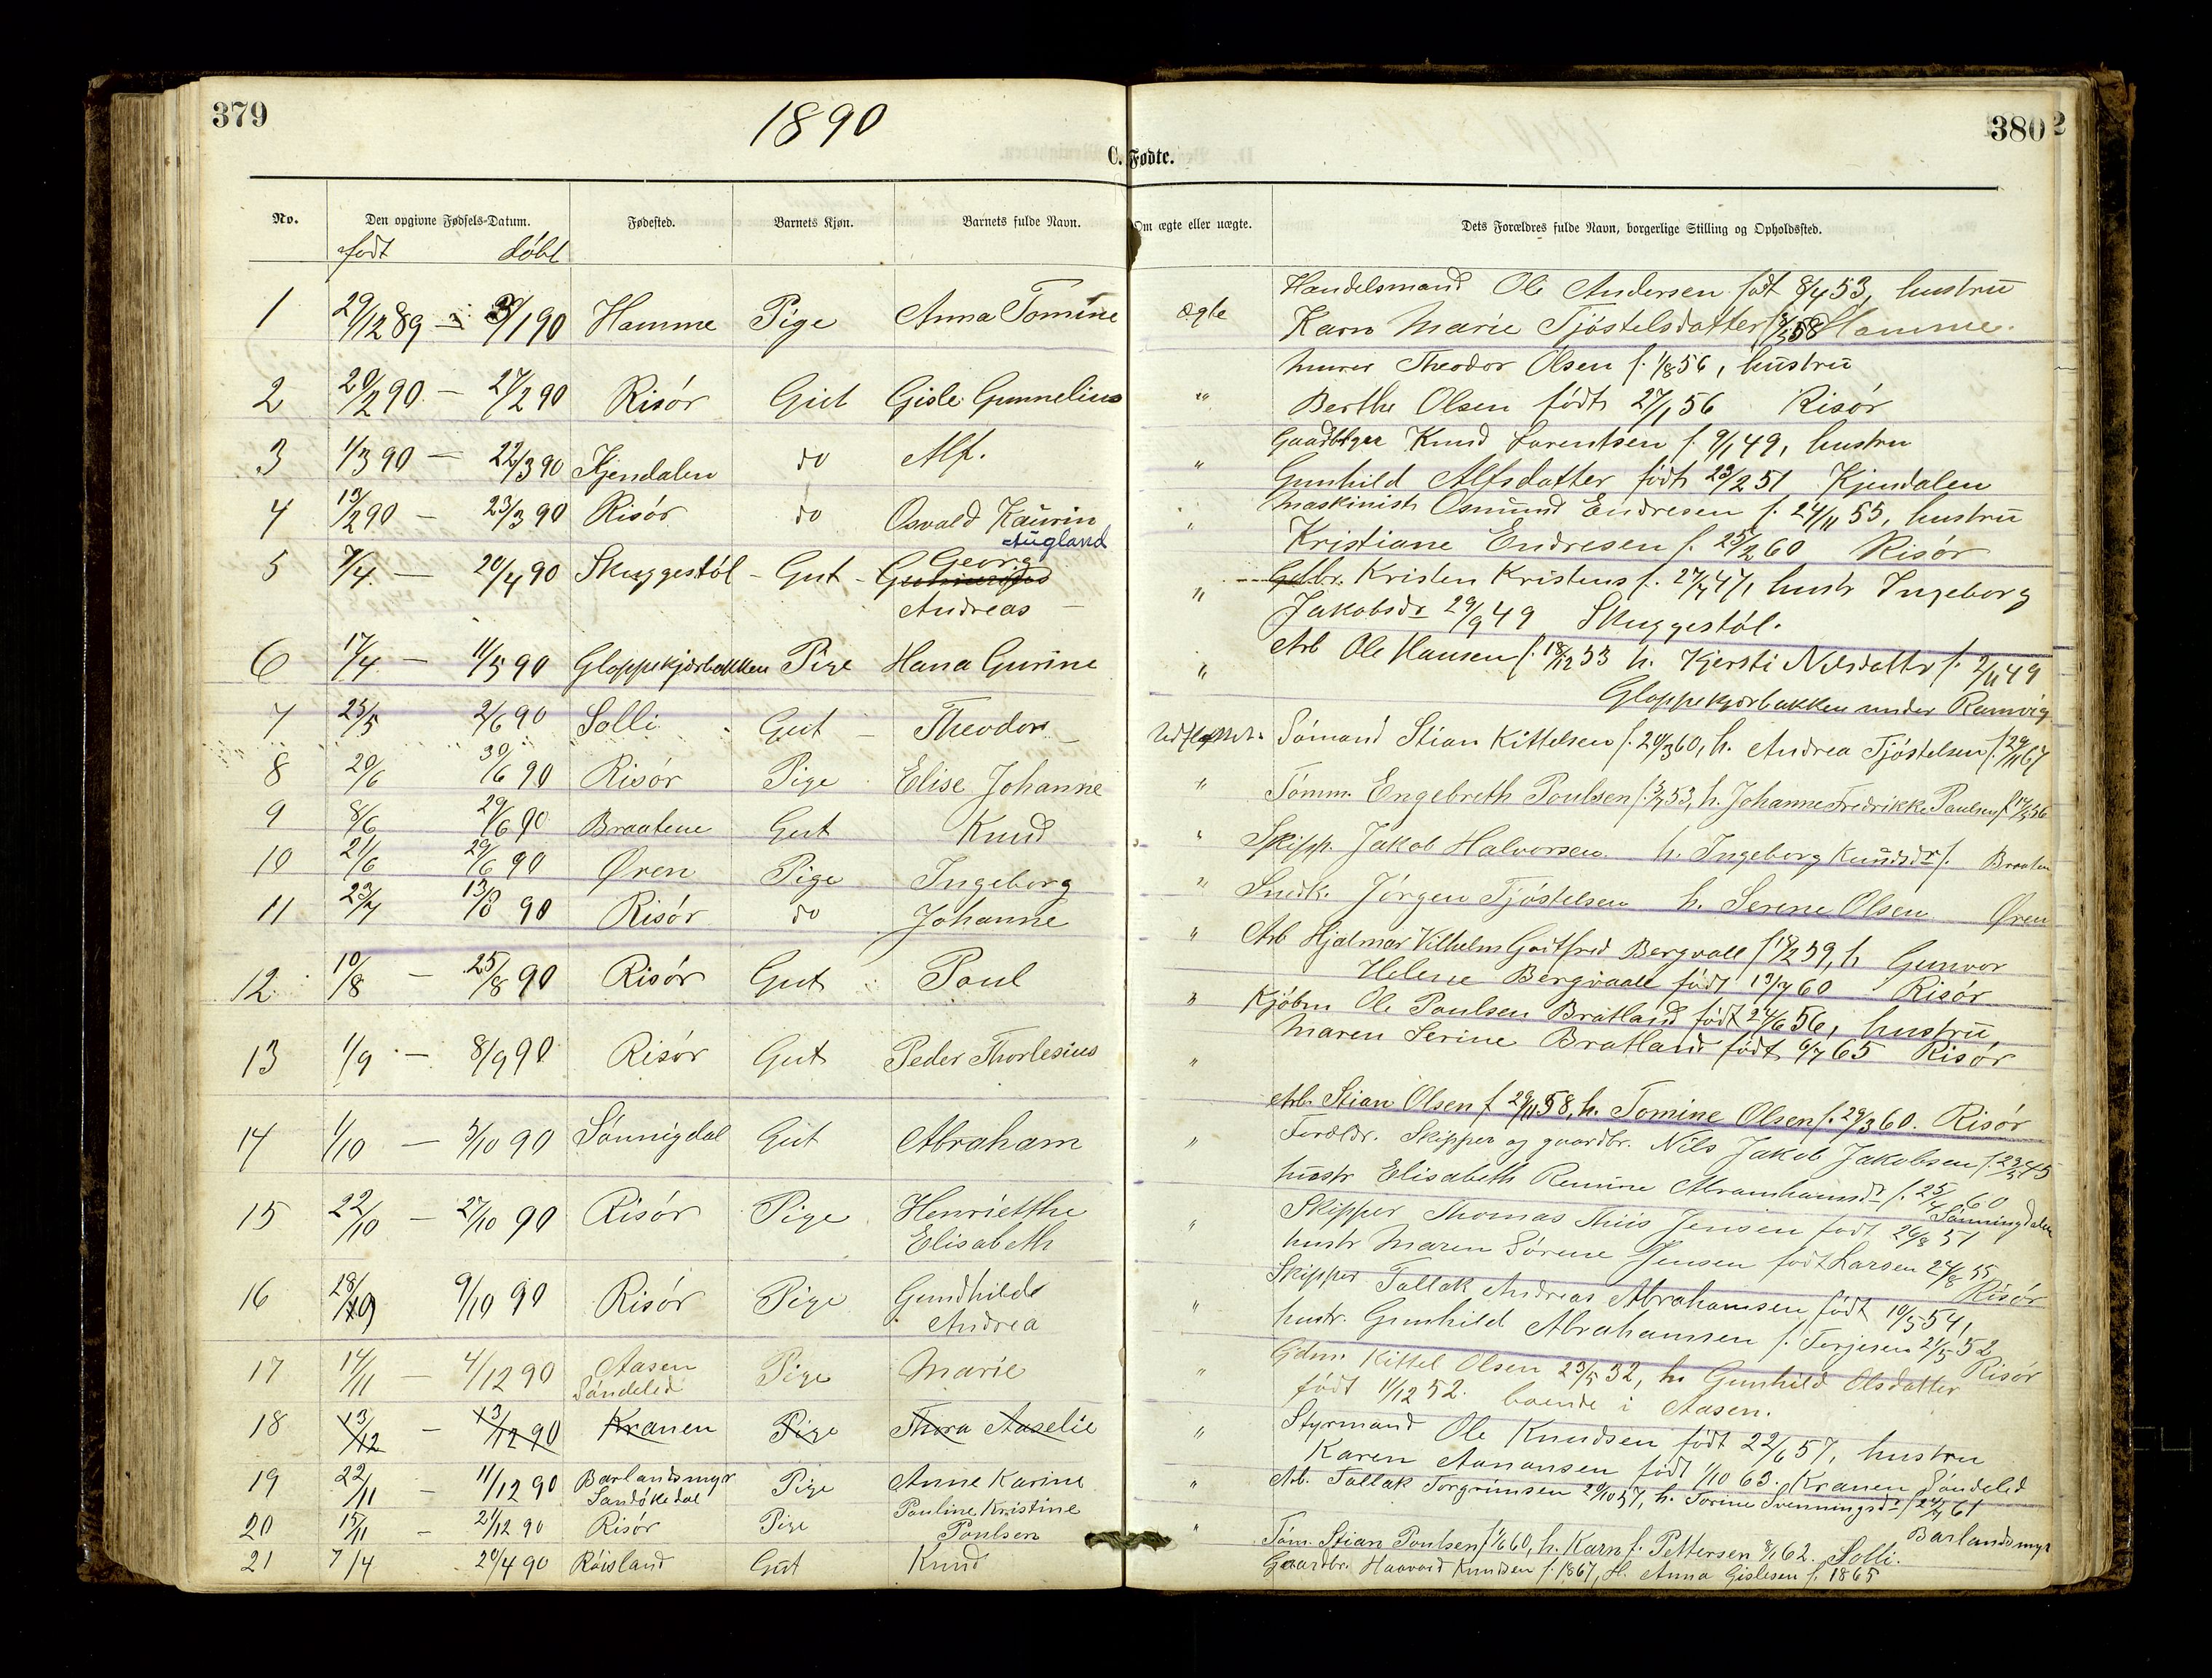 379
1890
380
2
C. Fødte.
No. Den opgivne Fødsels-Datum. Fødested. Barnets Kjøn. Barnets fulde Navn. Om ægte eller uægte. Dets Forældres fulde Navn, borgerlige Stilling og Opholdssted.
født døbt
1 29/12 89 – 3/1 90 Hamme Pige Anna Tomine ægte Handelsmand Ole Andersen født 8/4 53, hustru
Karn Marie Tjøstelsdatter 58 Hamme.
2 20/2 90 – 27/2 90 Risør Gut Gisle Gunnelius " Murer Theodor Olsen f. 1/8 56, hustru
Berthe Olsen født 27/1 56 Risør
3 1/3 90 – 22/3 90 Kjendalen do Alf. " Knud Larentsen f. 9/1 49, hustru
Gunhild Alfsdatter født 23/2 51 Kjendalen
4 13/2 90 – 23/3 90 Risør do Osvald Kaurin " Maskinist Osmund Endresen f. 24/11 55, hustru
Augland
Kristiane Endresen f. 25/2 60 Risør
5 7/4 – 20/4 90 Skuggestøl – Gut – Georg
Andreas –
" Gdbr. Kristen Kristens f. 27/7 47, hustr Ingeborg
Jakobsdr 29/9 49 Skuggestøl.
6 17/4 – 11/5 90 Gloppekjærbakken Pige Hana Gurine " Arb Ole Hansen f. 18/12 53 h. Kjersti Nilsdattr f. 2/11 49
Gloppekjærbakken under Ramvig
7 25/5 2/6 90 Solli Gut – Theodor – Sømand Stian Kittelsen f. 20/3 60, h. Andrea Tjøstelsen f. 29/11 67
8 20/6 30/6 90 Risør Pige Elise Johanne " Tømm. Engebreth Poulsen f. 53, h. Johanne Fredrikke Paulsen f. 56
9 8/6 29/6 90 Braatene Gut Knud " Skipp. Jakob Halvorsen h. Ingeborg Knudsdr f. Braaten
10 21/6 29/6 90 Øren Pige Ingeborg " Snedk. Jørgen Tjøstelsen h. Serene Olsen Øren
11 23/7 13/8 90 Risør do Johanne " Arb Hjalmar Vilhelm Godtfred Bergvall f 18/2 59, h Gunvor
Helene Bergvall født 13/7 60 Risør
12 10/8 – 25/8 90 Risør Gut Poul " Kjøbm Ole Paulsen Bratland født 24/6 56, hustru
Maren Serine Bratland født 6/7 65 Risør
13 1/9 – 8/9 90 Risør Gut Peder Thorlesius " Arb. Stian Olsen f 29/11 58, h. Tomine Olsen f. 29/3 60. Risør
14 1/10 – 5/10 90 Sønnigdal Gut Abraham " Foreldr. Skipper og gaardbr. Nils Jakob Jakobsen f. 45
hustr Elisabeth Remine Abramhamsdr f. 25/4 60
Sønningdalen
15 22/10 – 27/10 90 Risør Pige Henriethe
Elisabeth
" Skipper Thomas Thiis Jensen født 26/8 51
hustr Maren Sørene Jensen født Larsen 27/8 55
Risør
16 18/9 9/10 90 Risør Pige Gundhilde
Andrea
" Skipper Tallak Andreas Abrahamsen født 10/5 54,
hustr. Gunhild Abrahamsen f. Terjesen 21/5 52
Risør
17 14/11 – 4/12 90 Aasen
Søndeled
Pige Marie " Gdm. Kittel Olsen 23/5 32, h. Gunhild Olsdatter
født 11/12 52. boende i Aasen.
18 13/12 – 13/12 90 Kranen Pige Thora Aaselie " Styrmand Ole Knudsen født 22/6 57, hustru
Karen Aanonsen født 1/10 63. Kranen Søndeled
19 22/11 – 11/12 90 Barlandsmyr
Sandøkedal
Pige Anne Karine " Arb. Tallak Torgrimsen 20/10 57, h. Torine Svenningsdr f. 61
Barlandsmyr
20 15/11 – 21/12 90 Risør Pige Pauline Kristine
Poulsen
" Tøm. Stian Poulsen f 60, h. Karn f. Pettersen 8/1 62. Solli.
21 7/4 20/4 90 Røisland Gut Knud Gaardbr. Haavord Knudsen f. 1867, H. Anna Gislesen f. 1865